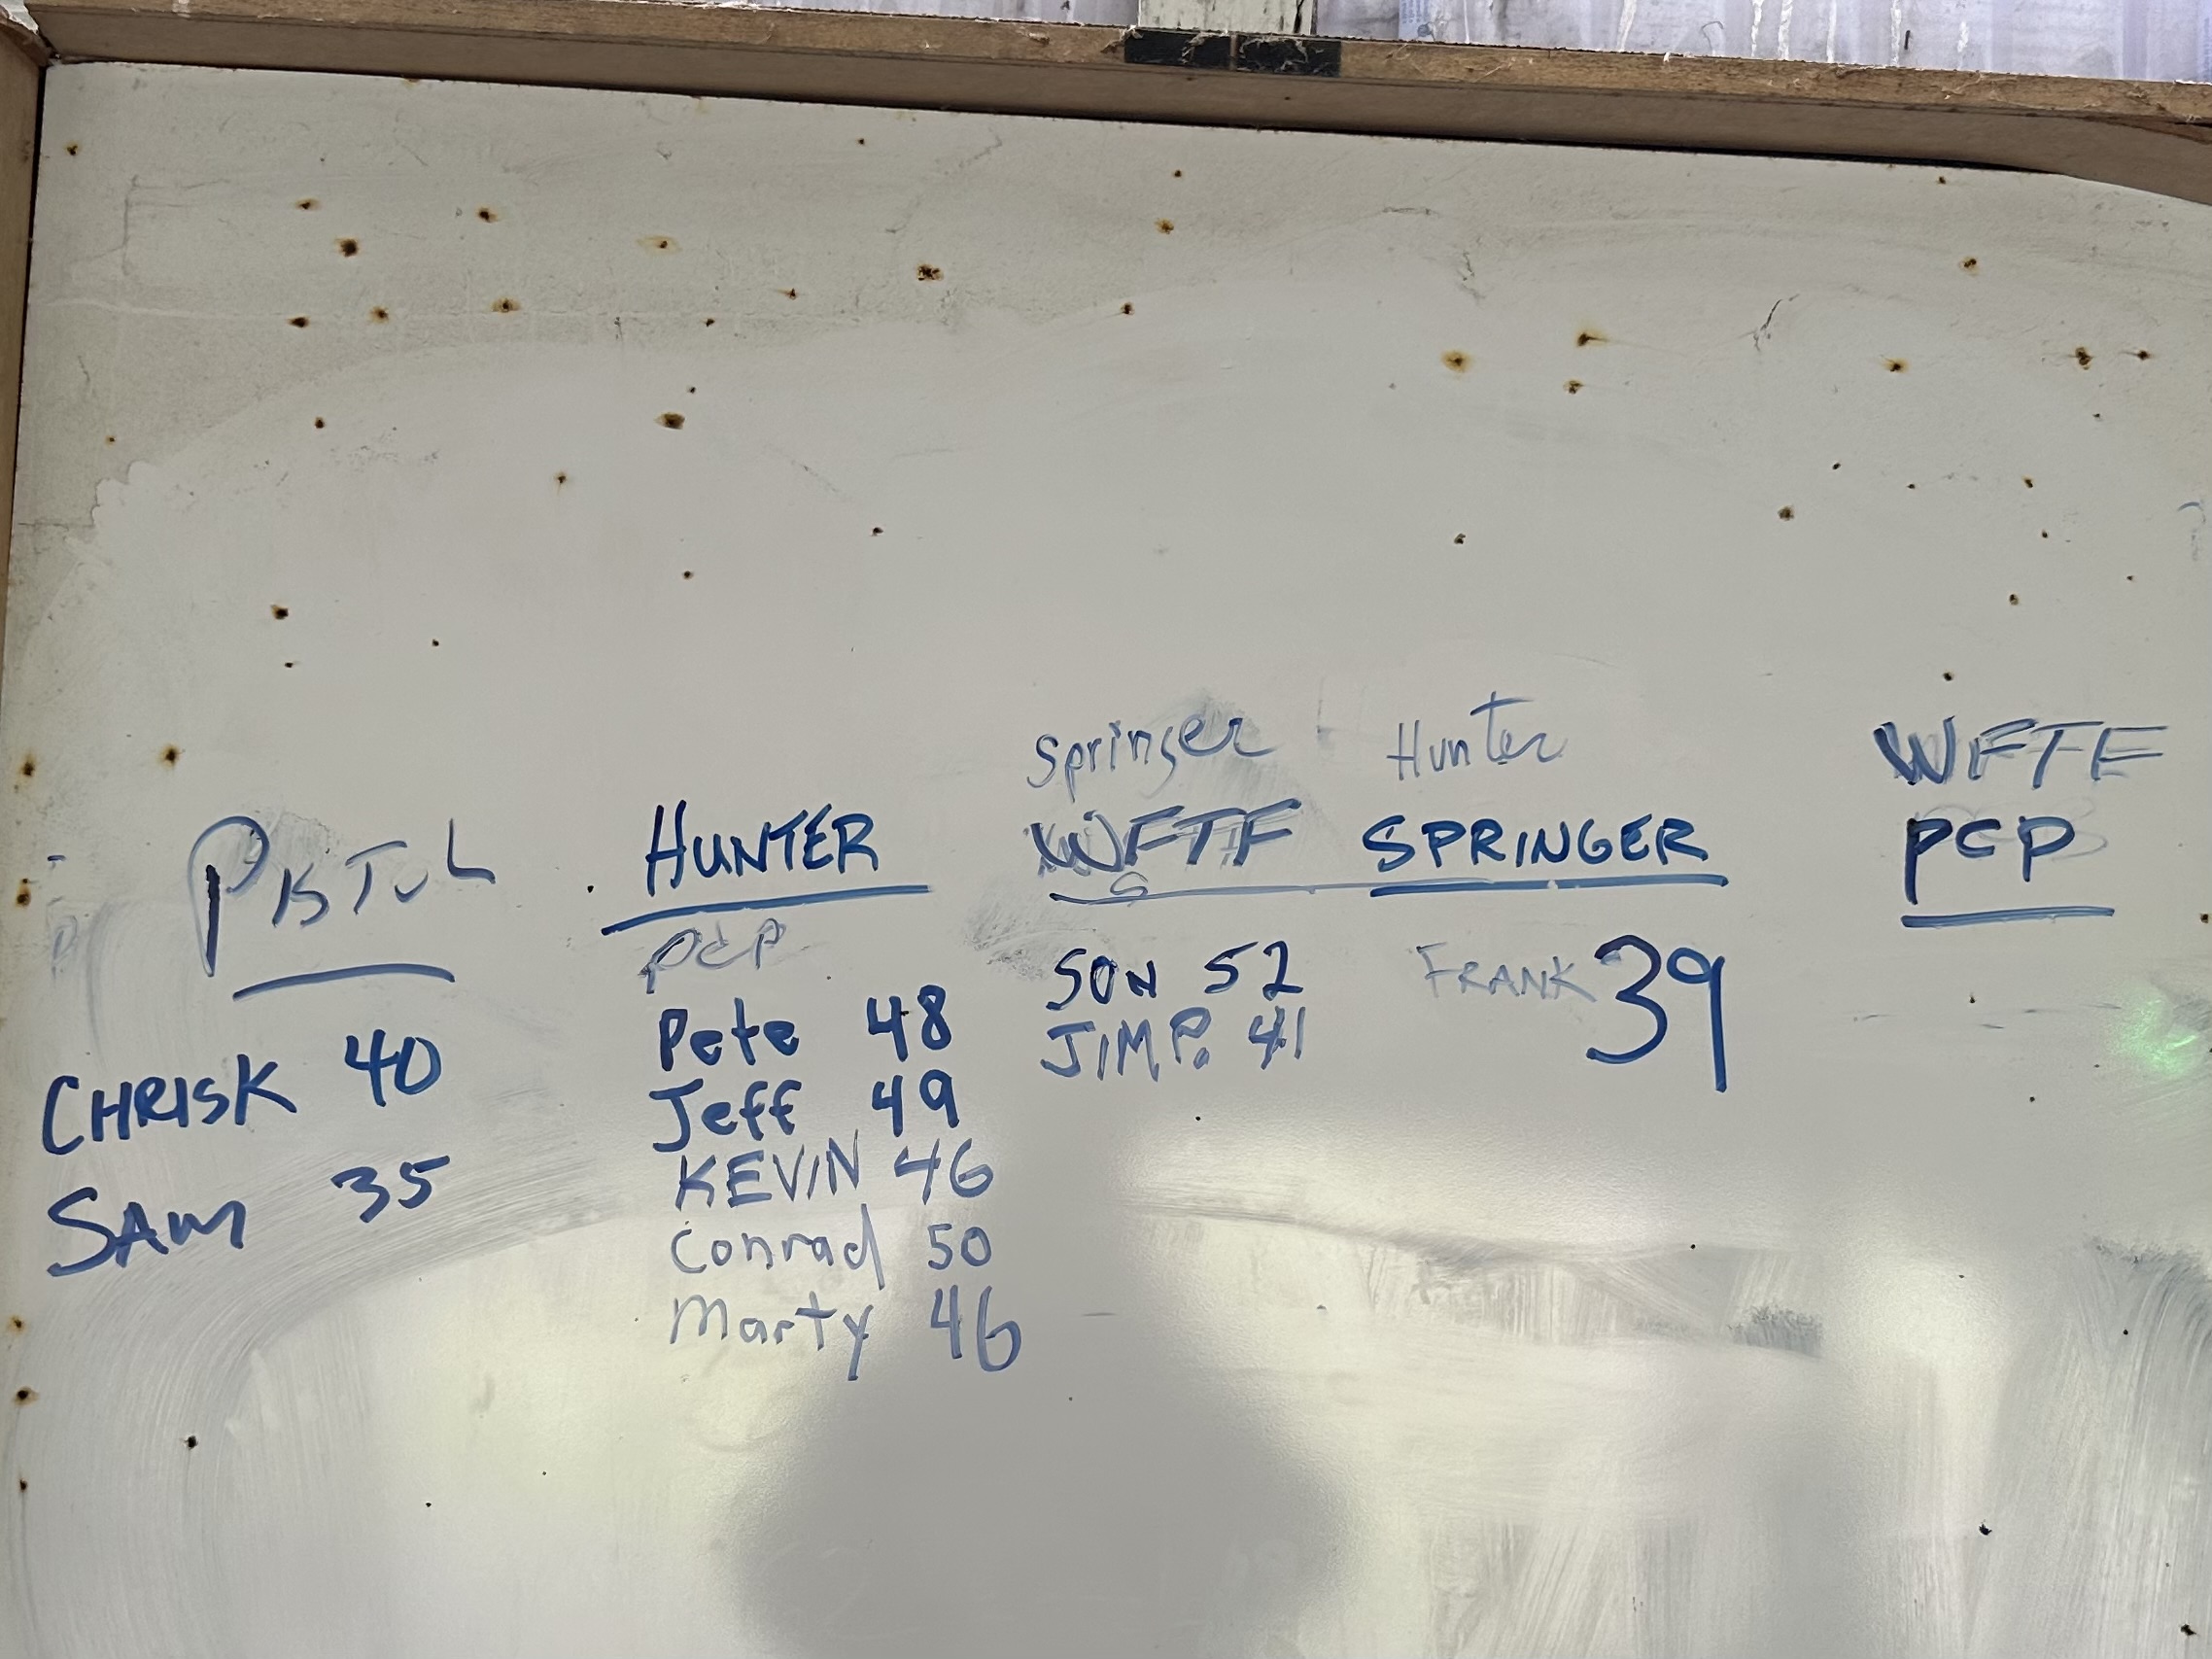 PISTOL
CHRIS K 40
SAM 35
HUNTER
PCP
Pete 48
Jeff 49
KEVIN 46
Conrad 50
Marty 46
Springer
WFTF
SON 52
JIM P. 41
Hunter
SPRINGER
FRANK 39
WFTF
PCP